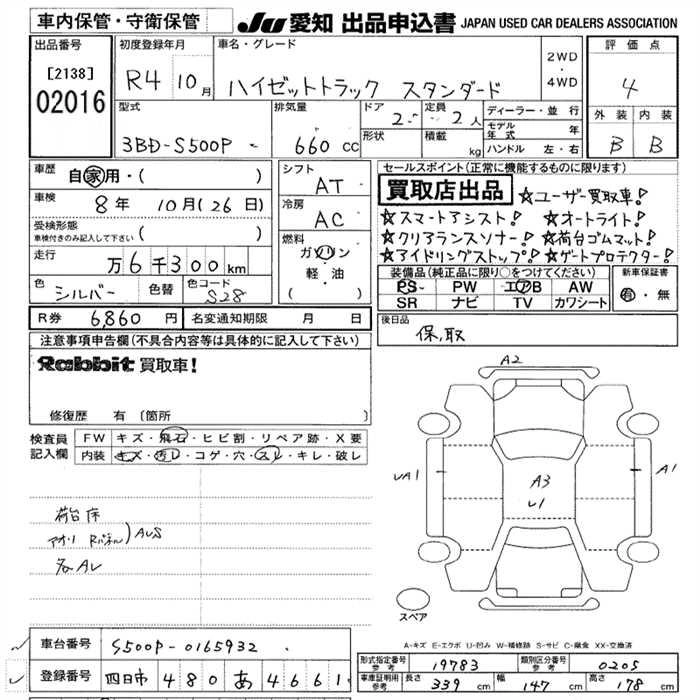 車内保管・守衛保管
JU 愛知 出品申込書 JAPAN USED CAR DEALERS ASSOCIATION
出品番号
[2138]
02016
初度登録年月
R4 10月
車名・グレード
ハイゼットトラック スタンダード
2WD
・
4WD
評価点
4
外装 内装
B B
型式
3BD-S500P
排気量
660 cc
ドア
2
形状
定員
2人
積載
kg
ディーラー・並行
モデル年式 年
ハンドル 左・右
車歴
自家用・( )
車検
8年 10月(26日)
受検形態
車検付きのみ記入して下さい ( )
走行
万6千300km
色
シルバー
色替
色コード
S28
シフト
AT
冷房
AC
燃料
ガソリン
軽・油
( )
セールスポイント(正常に機能するものに限ります)
買取店出品 ☆ユーザー買取車!
☆スマートアシスト! ☆オートライト!
☆クリアランスソナー! ☆荷台ゴムマット!
☆アイドリングストップ! ☆ゲートプロテクター!
装備品(純正品に限り○をつけてください)
PS PW エアB AW
SR ナビ TV カワシート
新車保証書
有・無
R券 6,860円 名変通知期限 月 日
後日品
保,取
注意事項申告欄(不具合内容等は具体的に記入して下さい)
Rabbit 買取車!
修復歴 有 〔箇所 〕
検査員
記入欄
FW キズ・飛石・ヒビ割・リペア跡・X要
内装 キズ・汚レ・コゲ・穴・スレ・キレ・破レ
荷台床
アオリ Rパネル)AUS
各AU
A2
UA1
A3
U1
A1
スペア
A-キズ E-エクボ U-凹み W-補修跡 S-サビ C-腐食 XX-交換済
車台番号 S500P-0165932
登録番号 四日市 480 あ 4661
形式指定番号
参考
19783
類別区分番号
参考
0205
車庫証明用
参考
長さ 339cm 幅 147cm 高さ 178cm